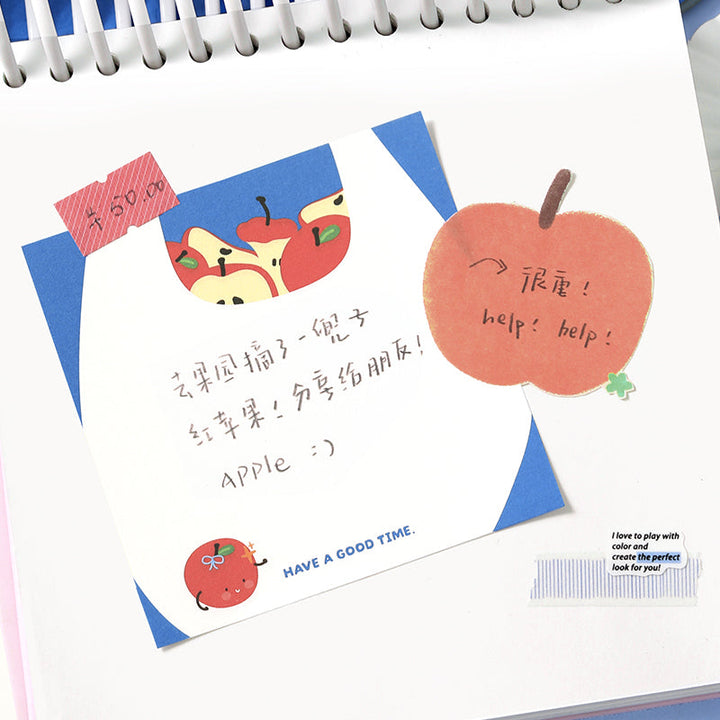 ¥ 50.00
去果园摘了一兜子
红苹果！分享给朋友！
APPle :)
HAVE A GOOD TIME.
很重！
help! help!
I love to play with
color and
create the perfect
look for you!